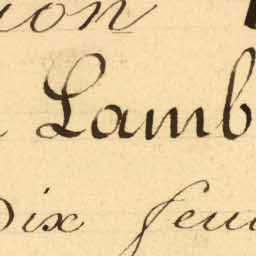 ion
Lamb
Dix feui